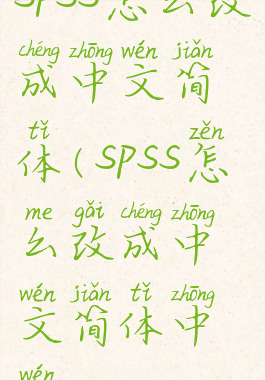 SPSS怎么改
chéng zhōng wén jiǎn
成中文简
tǐ zěn
体(SPSS怎
me gǎi chéng zhōng
么改成中
wén jiǎn tǐ zhōng
文简体中
wén